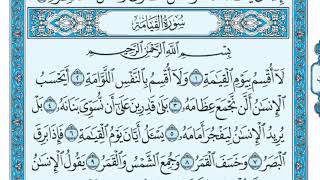 سُورَةُ الْقِيَامَةِ
بِسْمِ اللَّهِ الرَّحْمَٰنِ الرَّحِيمِ
لَآ أُقْسِمُ بِيَوْمِ الْقِيَٰمَةِ ١ وَلَآ أُقْسِمُ بِالنَّفْسِ اللَّوَّامَةِ ٢ أَيَحْسَبُ
الْإِنسَٰنُ أَلَّن نَّجْمَعَ عِظَامَهُۥ ٣ بَلَىٰ قَٰدِرِينَ عَلَىٰٓ أَن نُّسَوِّىَ بَنَانَهُۥ ٤ بَلْ
يُرِيدُ الْإِنسَٰنُ لِيَفْجُرَ أَمَامَهُۥ ٥ يَسْـَٔلُ أَيَّانَ يَوْمُ الْقِيَٰمَةِ ٦ فَإِذَا بَرِقَ
الْبَصَرُ ٧ وَخَسَفَ الْقَمَرُ ٨ وَجُمِعَ الشَّمْسُ وَالْقَمَرُ ٩ يَقُولُ الْإِنسَٰنُ